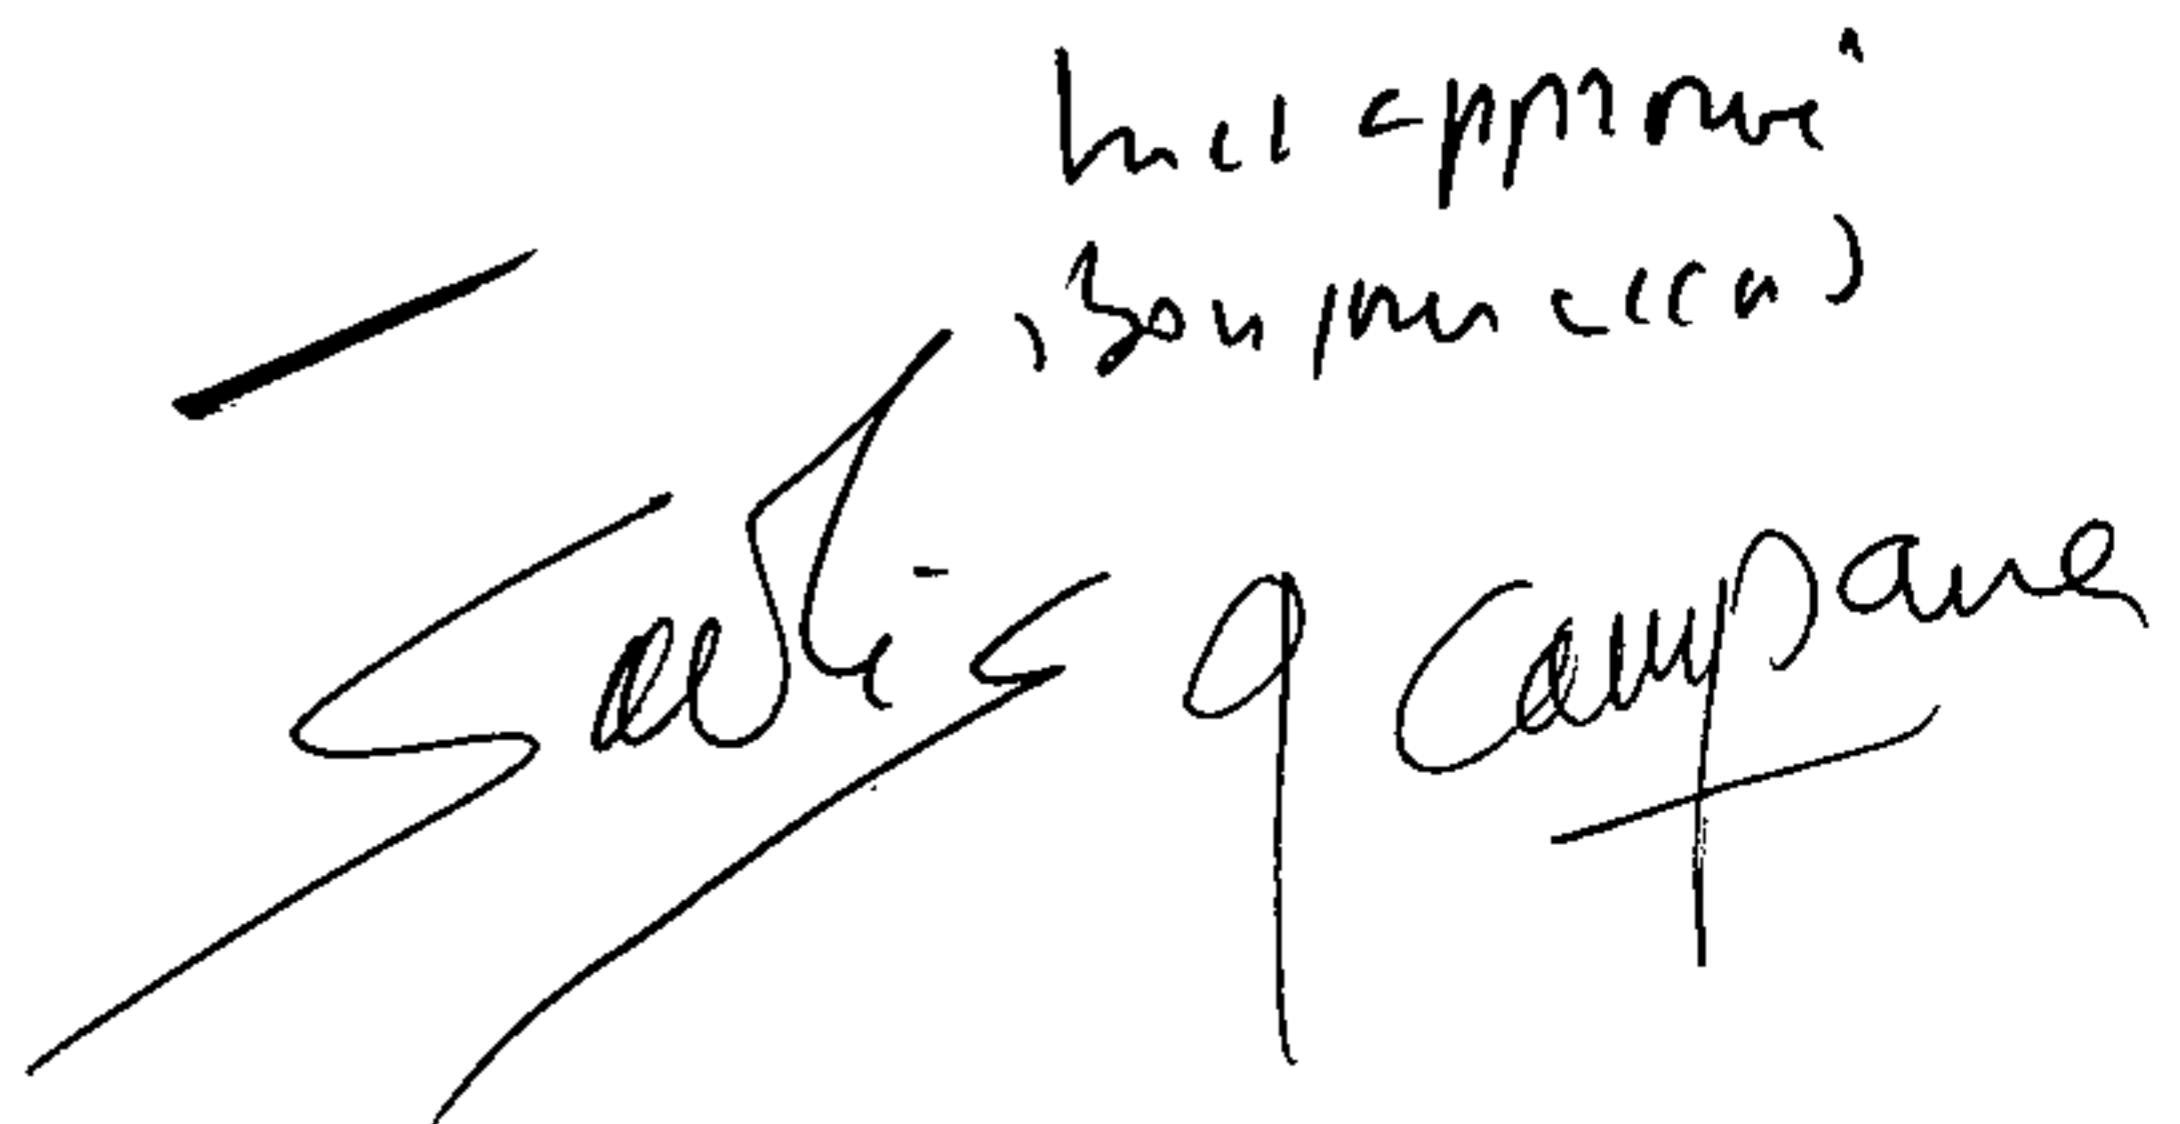 Lu et approuvé
, Bon pour accord
Santis q Campane